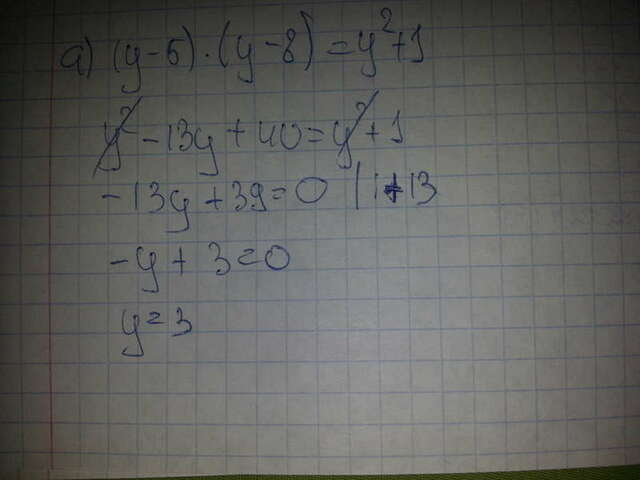 а) (y-5)·(y-8)=y²+1
y²-13y+40=y²+1
-13y+39=0 | :13
-y+3=0
y=3